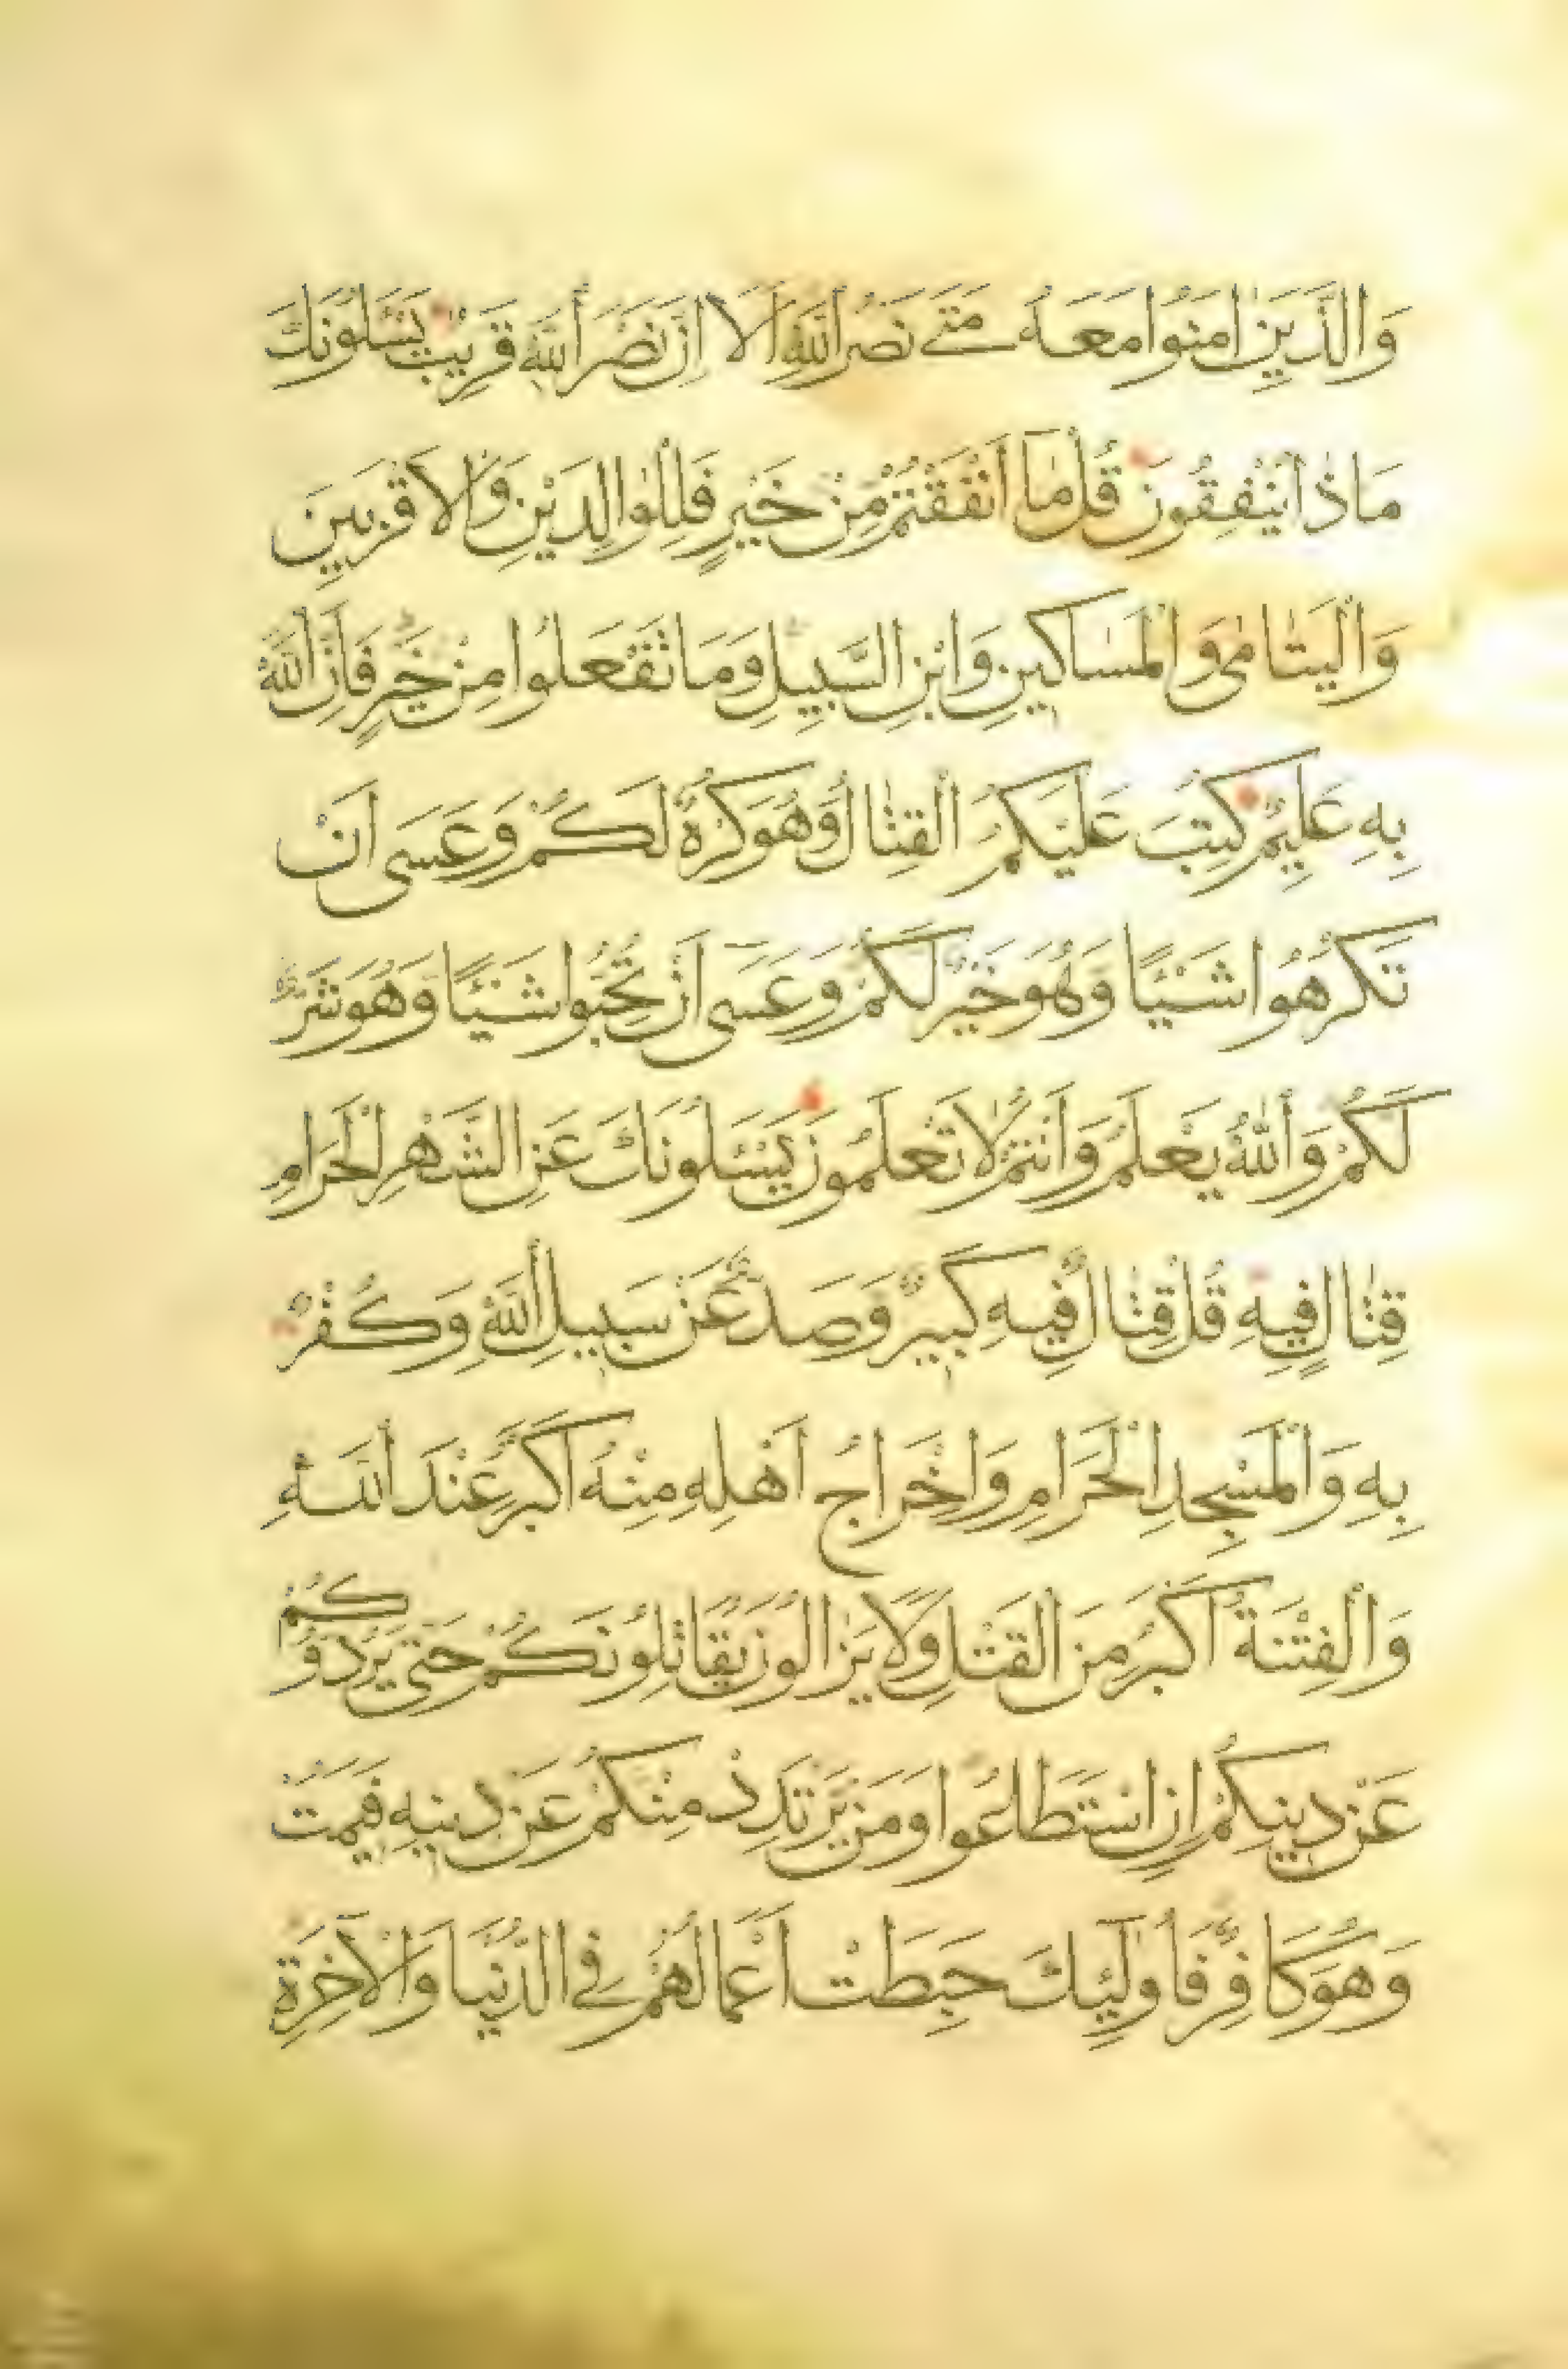 وَالَّذِينَ اٰمَنُوا مَعَهُ مَتٰى نَصْرُ اللّٰهِ اَلَا اِنَّ نَصْرَ اللّٰهِ قَرِيبٌ يَسْـَٔلُونَكَ
مَاذَا يُنْفِقُونَ قُلْ مَا اَنْفَقْتُمْ مِنْ خَيْرٍ فَلِلْوَالِدَيْنِ وَالْاَقْرَبِينَ
وَالْيَتٰامٰى وَالْمَسٰاكِينِ وَابْنِ السَّبِيلِ وَمَا تَفْعَلُوا مِنْ خَيْرٍ فَاِنَّ اللّٰهَ
بِهِ عَلِيمٌ كُتِبَ عَلَيْكُمُ الْقِتٰالُ وَهُوَ كُرْهٌ لَكُمْ وَعَسَى اَنْ
تَكْرَهُوا شَيْـًٔا وَهُوَ خَيْرٌ لَكُمْ وَعَسَى اَنْ تُحِبُّوا شَيْـًٔا وَهُوَ شَرٌّ
لَكُمْ وَاللّٰهُ يَعْلَمُ وَاَنْتُمْ لَا تَعْلَمُونَ يَسْـَٔلُونَكَ عَنِ الشَّهْرِ الْحَرَامِ
قِتٰالٍ فِيهِ قُلْ قِتٰالٌ فِيهِ كَبِيرٌ وَصَدٌّ عَنْ سَبِيلِ اللّٰهِ وَكُفْرٌ
بِهِ وَالْمَسْجِدِ الْحَرَامِ وَاِخْرَاجُ اَهْلِهِ مِنْهُ اَكْبَرُ عِنْدَ اللّٰهِ
وَالْفِتْنَةُ اَكْبَرُ مِنَ الْقَتْلِ وَلَا يَزَالُونَ يُقَاتِلُونَكُمْ حَتّٰى يَرُدُّوكُمْ
عَنْ دِينِكُمْ اِنِ اسْتَطَاعُوا وَمَنْ يَرْتَدِدْ مِنْكُمْ عَنْ دِينِهِ فَيَمُتْ
وَهُوَ كَافِرٌ فَاُولٰئِكَ حَبِطَتْ اَعْمَالُهُمْ فِي الدُّنْيَا وَالْاٰخِرَةِ